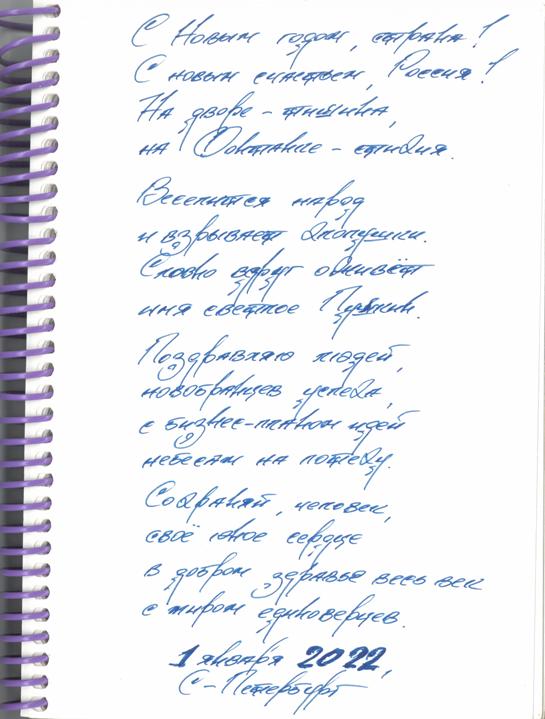 С Новым годом, страна!
С новым счастьем, Россия!
На дворе - тишина,
на Фонтанке - стихия.
Веселится народ
и взрывает хлопушки.
Словно вдруг оживёт
имя светлое Пушкин.
Поздравляю людей,
новобранцев успеха,
с бизнес-планом идей
небесам на потеху.
Сохраняй, человек,
своё юное сердце
в добром здравье весь век
с миром единоверцев.
1 января 2022,
С-Петербург